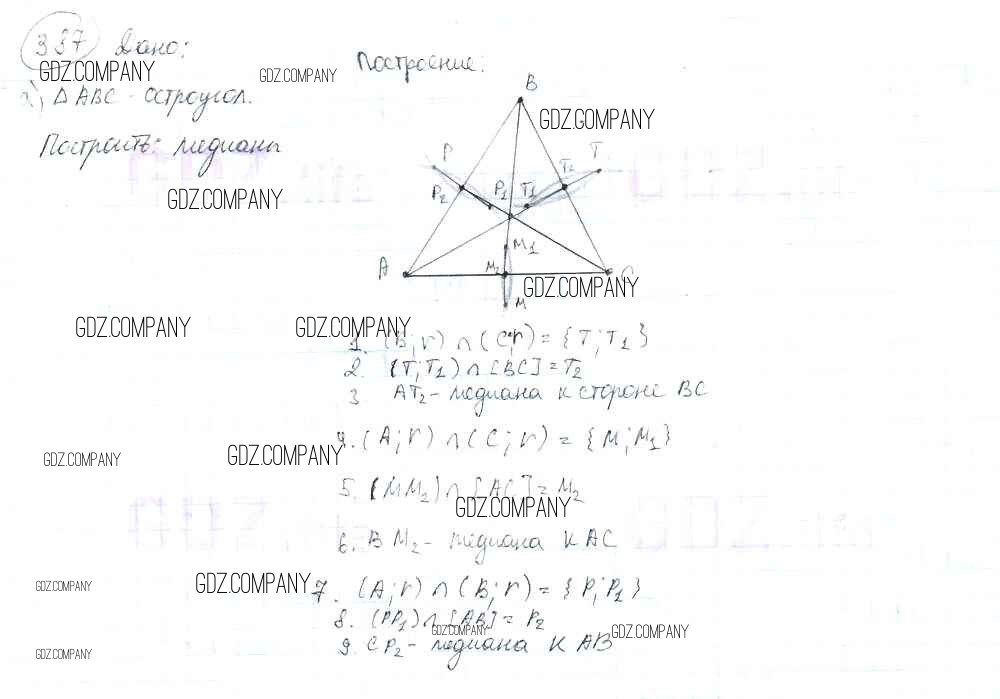 337 Дано:
GDZ.COMPANY
GDZ.COMPANY
Построение:
а) △ABC - остроугол.
Построить: медианы
GDZ.COMPANY
B
GDZ.GOMPANY
P
T
T2
P2
P1
T1
A
M1
M2
C
GDZ.COMPANY
M
GDZ.COMPANY
GDZ.COMPANY
1. (B;r) ∩ (C;r) = {T;T1}
2. (T;T1) ∩ [BC] = T2
3 AT2 - медиана к стороне BC
4. (A;r) ∩ (C;r) = {M;M1}
GDZ.COMPANY
GDZ.COMPANY
5. (MM2) ∩ [AC] = M2
GDZ.COMPANY
6. BM2 - медиана к AC
GDZ.COMPANY
GDZ.COMPANY
7. (A;r) ∩ (B;r) = {P;P1}
8. (PP1) ∩ [AB] = P2
GDZ.COMPANY
GDZ.COMPANY
9. CP2 - медиана к AB
GDZ.COMPANY